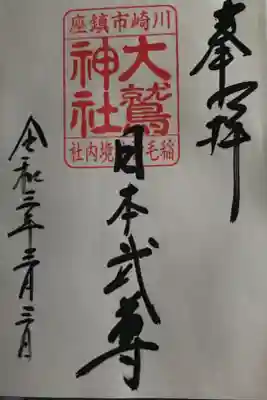 奉拝
川崎市鎮座
大鷲神社
稲毛神社境内社
日本武尊
令和三年三月三日